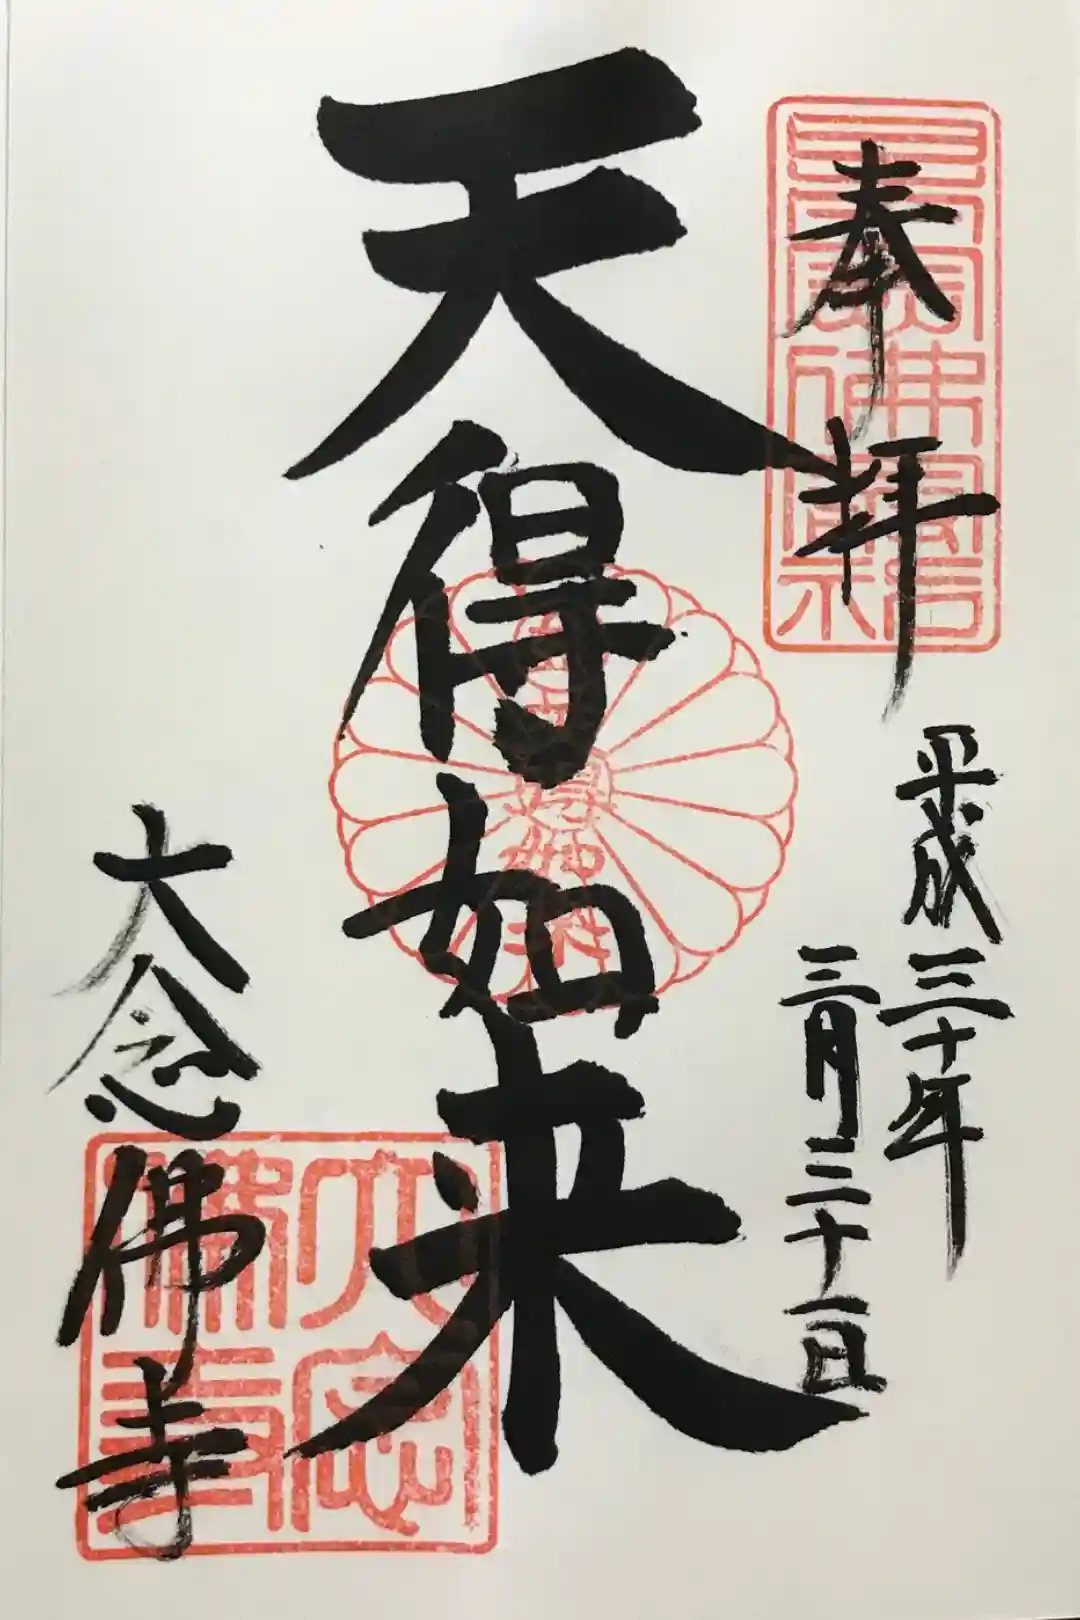 奉拝
平成三十年
三月三十一日
天得如来
大念佛寺
大念
佛寺